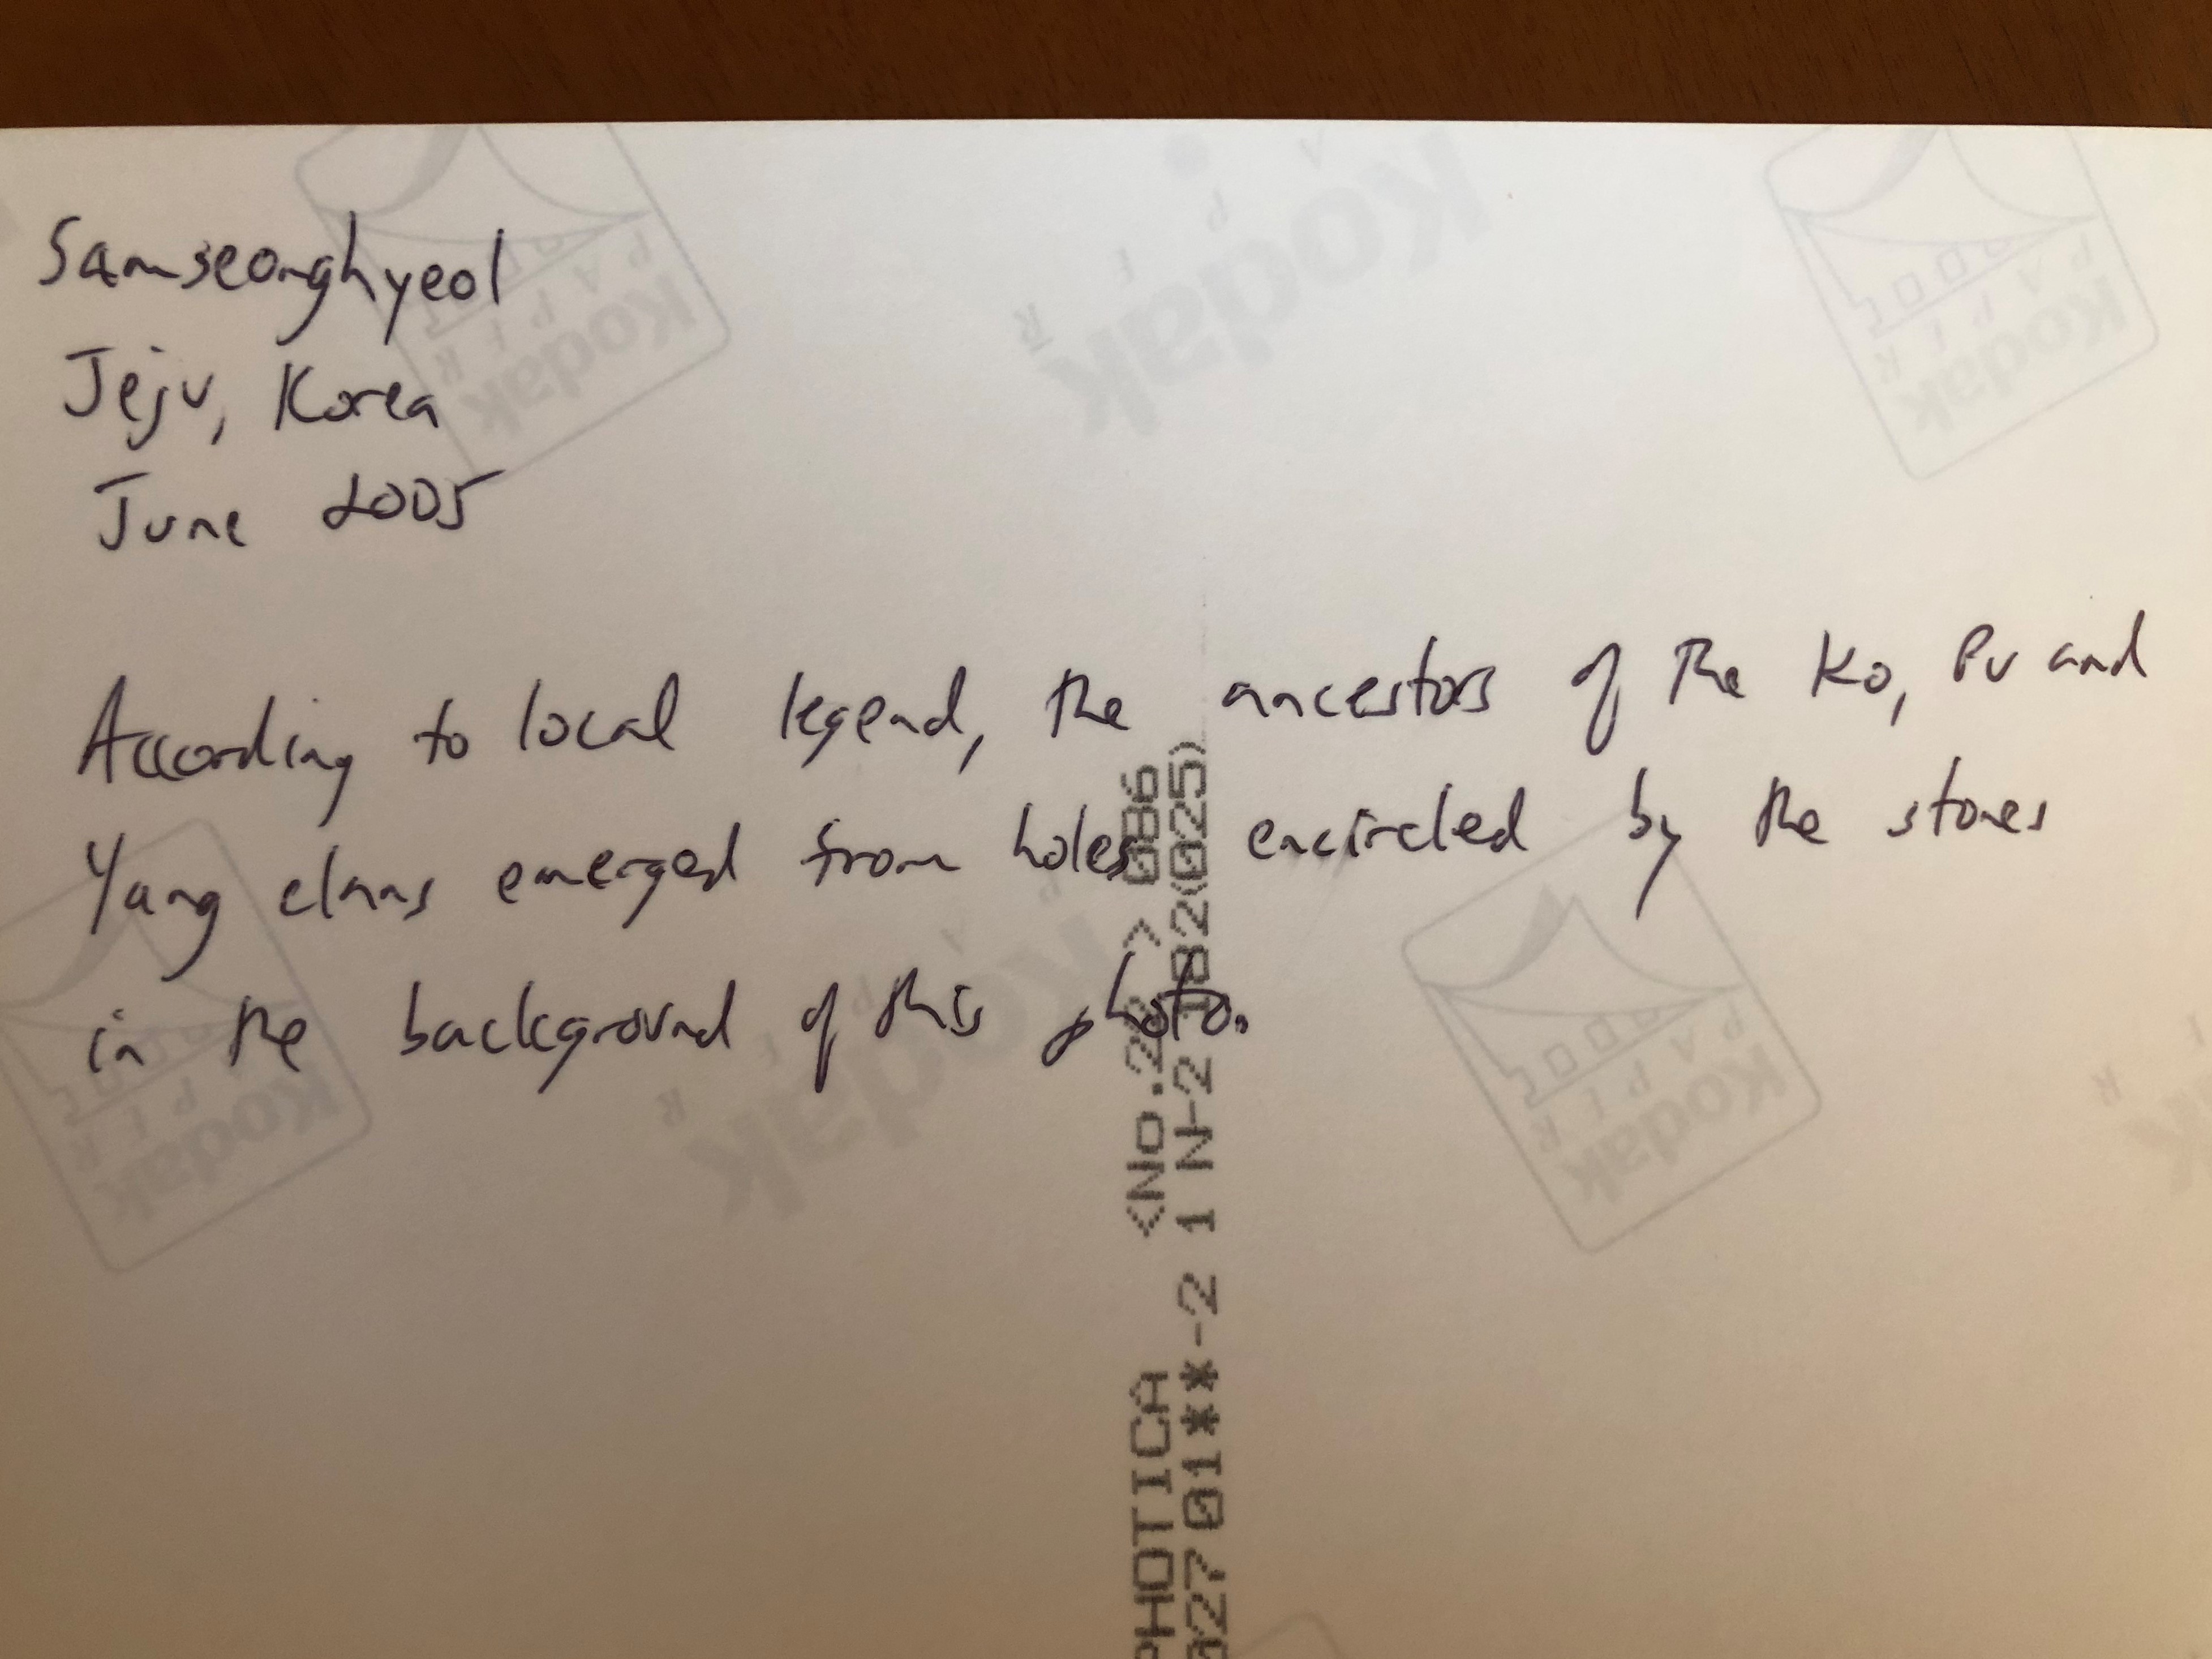 Samseonghyeol
Jeju, Korea
June 2005
According to local legend, the ancestors of the Ko, Pu and
Yang clans emerged from holes encircled by the stones
in the background of this photo.
PHOTICA <No. > 086
02701**-2 1 N-2 182(025)
Kodak
PAPER
Kodak
PAPER
Kodak
PAPER
Kodak
PAPER
Kodak
PAPER
Kodak
PAPER